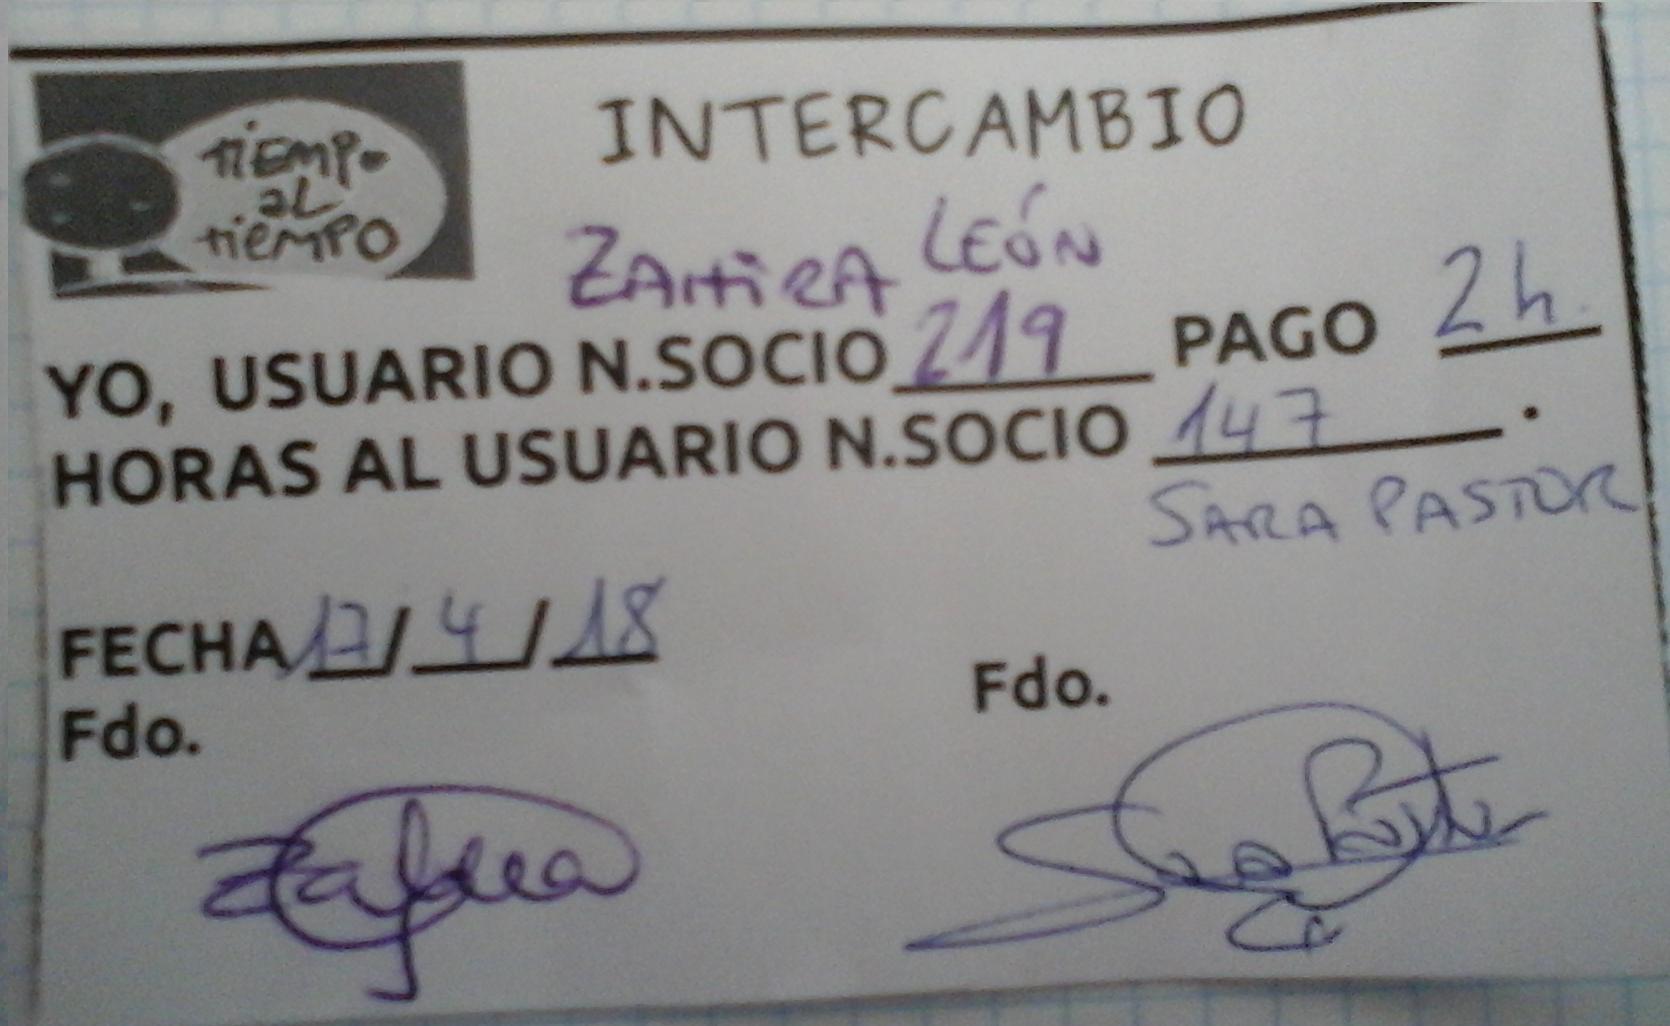 TiEMPO
aL
TiEMPO
INTERCAMBIO
ZAHiRA LEÓN
YO, USUARIO N.SOCIO 219 PAGO 2 h.
HORAS AL USUARIO N.SOCIO 147.
SARA PASTOR
FECHA 17/4/18
Fdo.
Fdo.